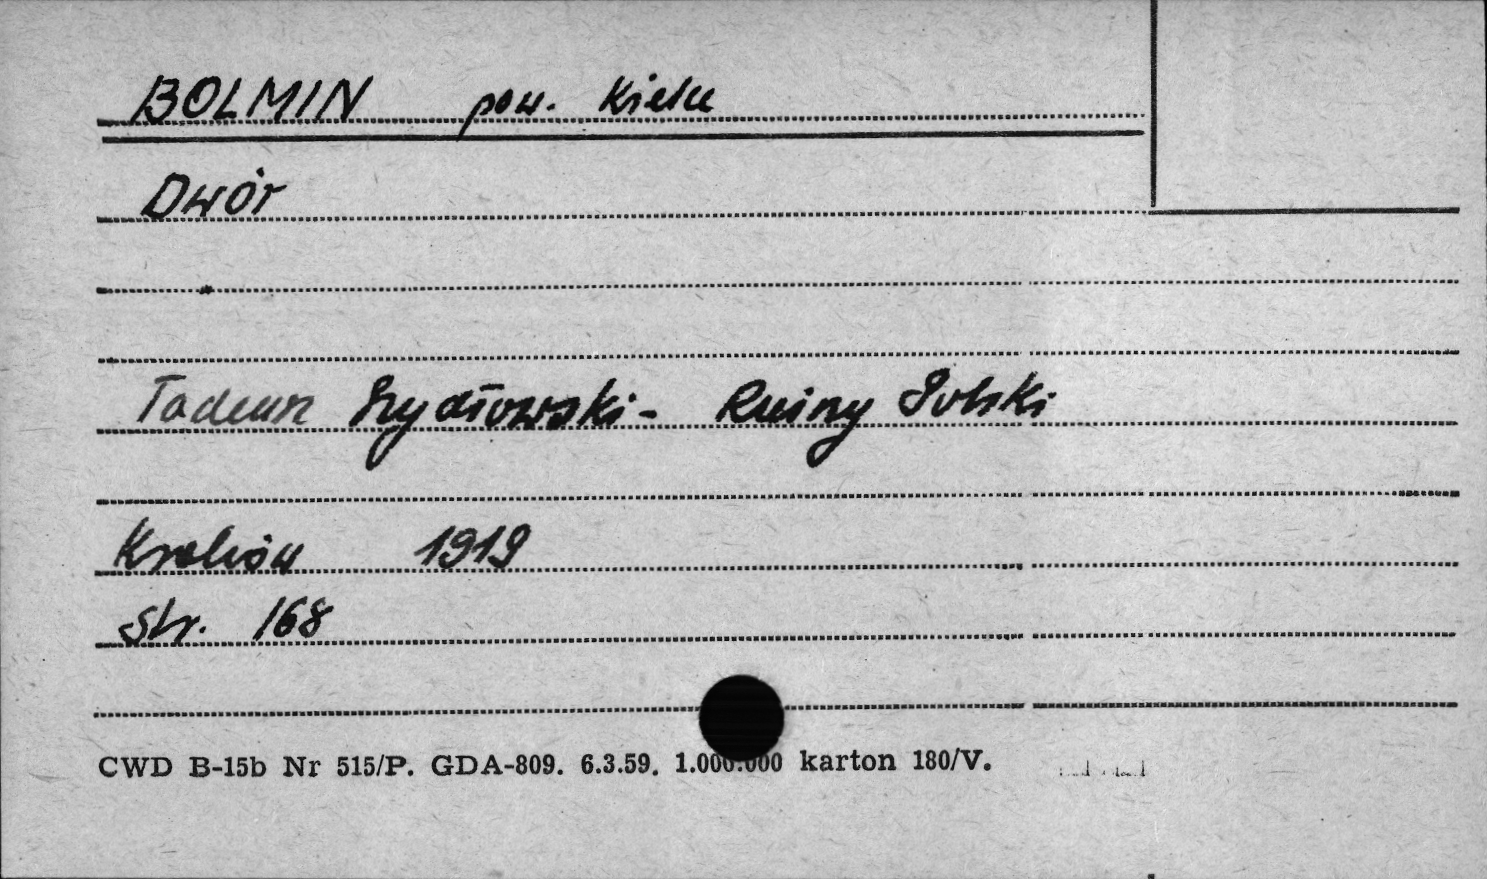 BOLMIN pow. Kielce
Dwór
Tadeusz Szydłowski - Ruiny Polski
Kraków 1919
str. 168
CWD B-15b Nr 515/P. GDA-809. 6.3.59. 1.000.000 karton 180/V.